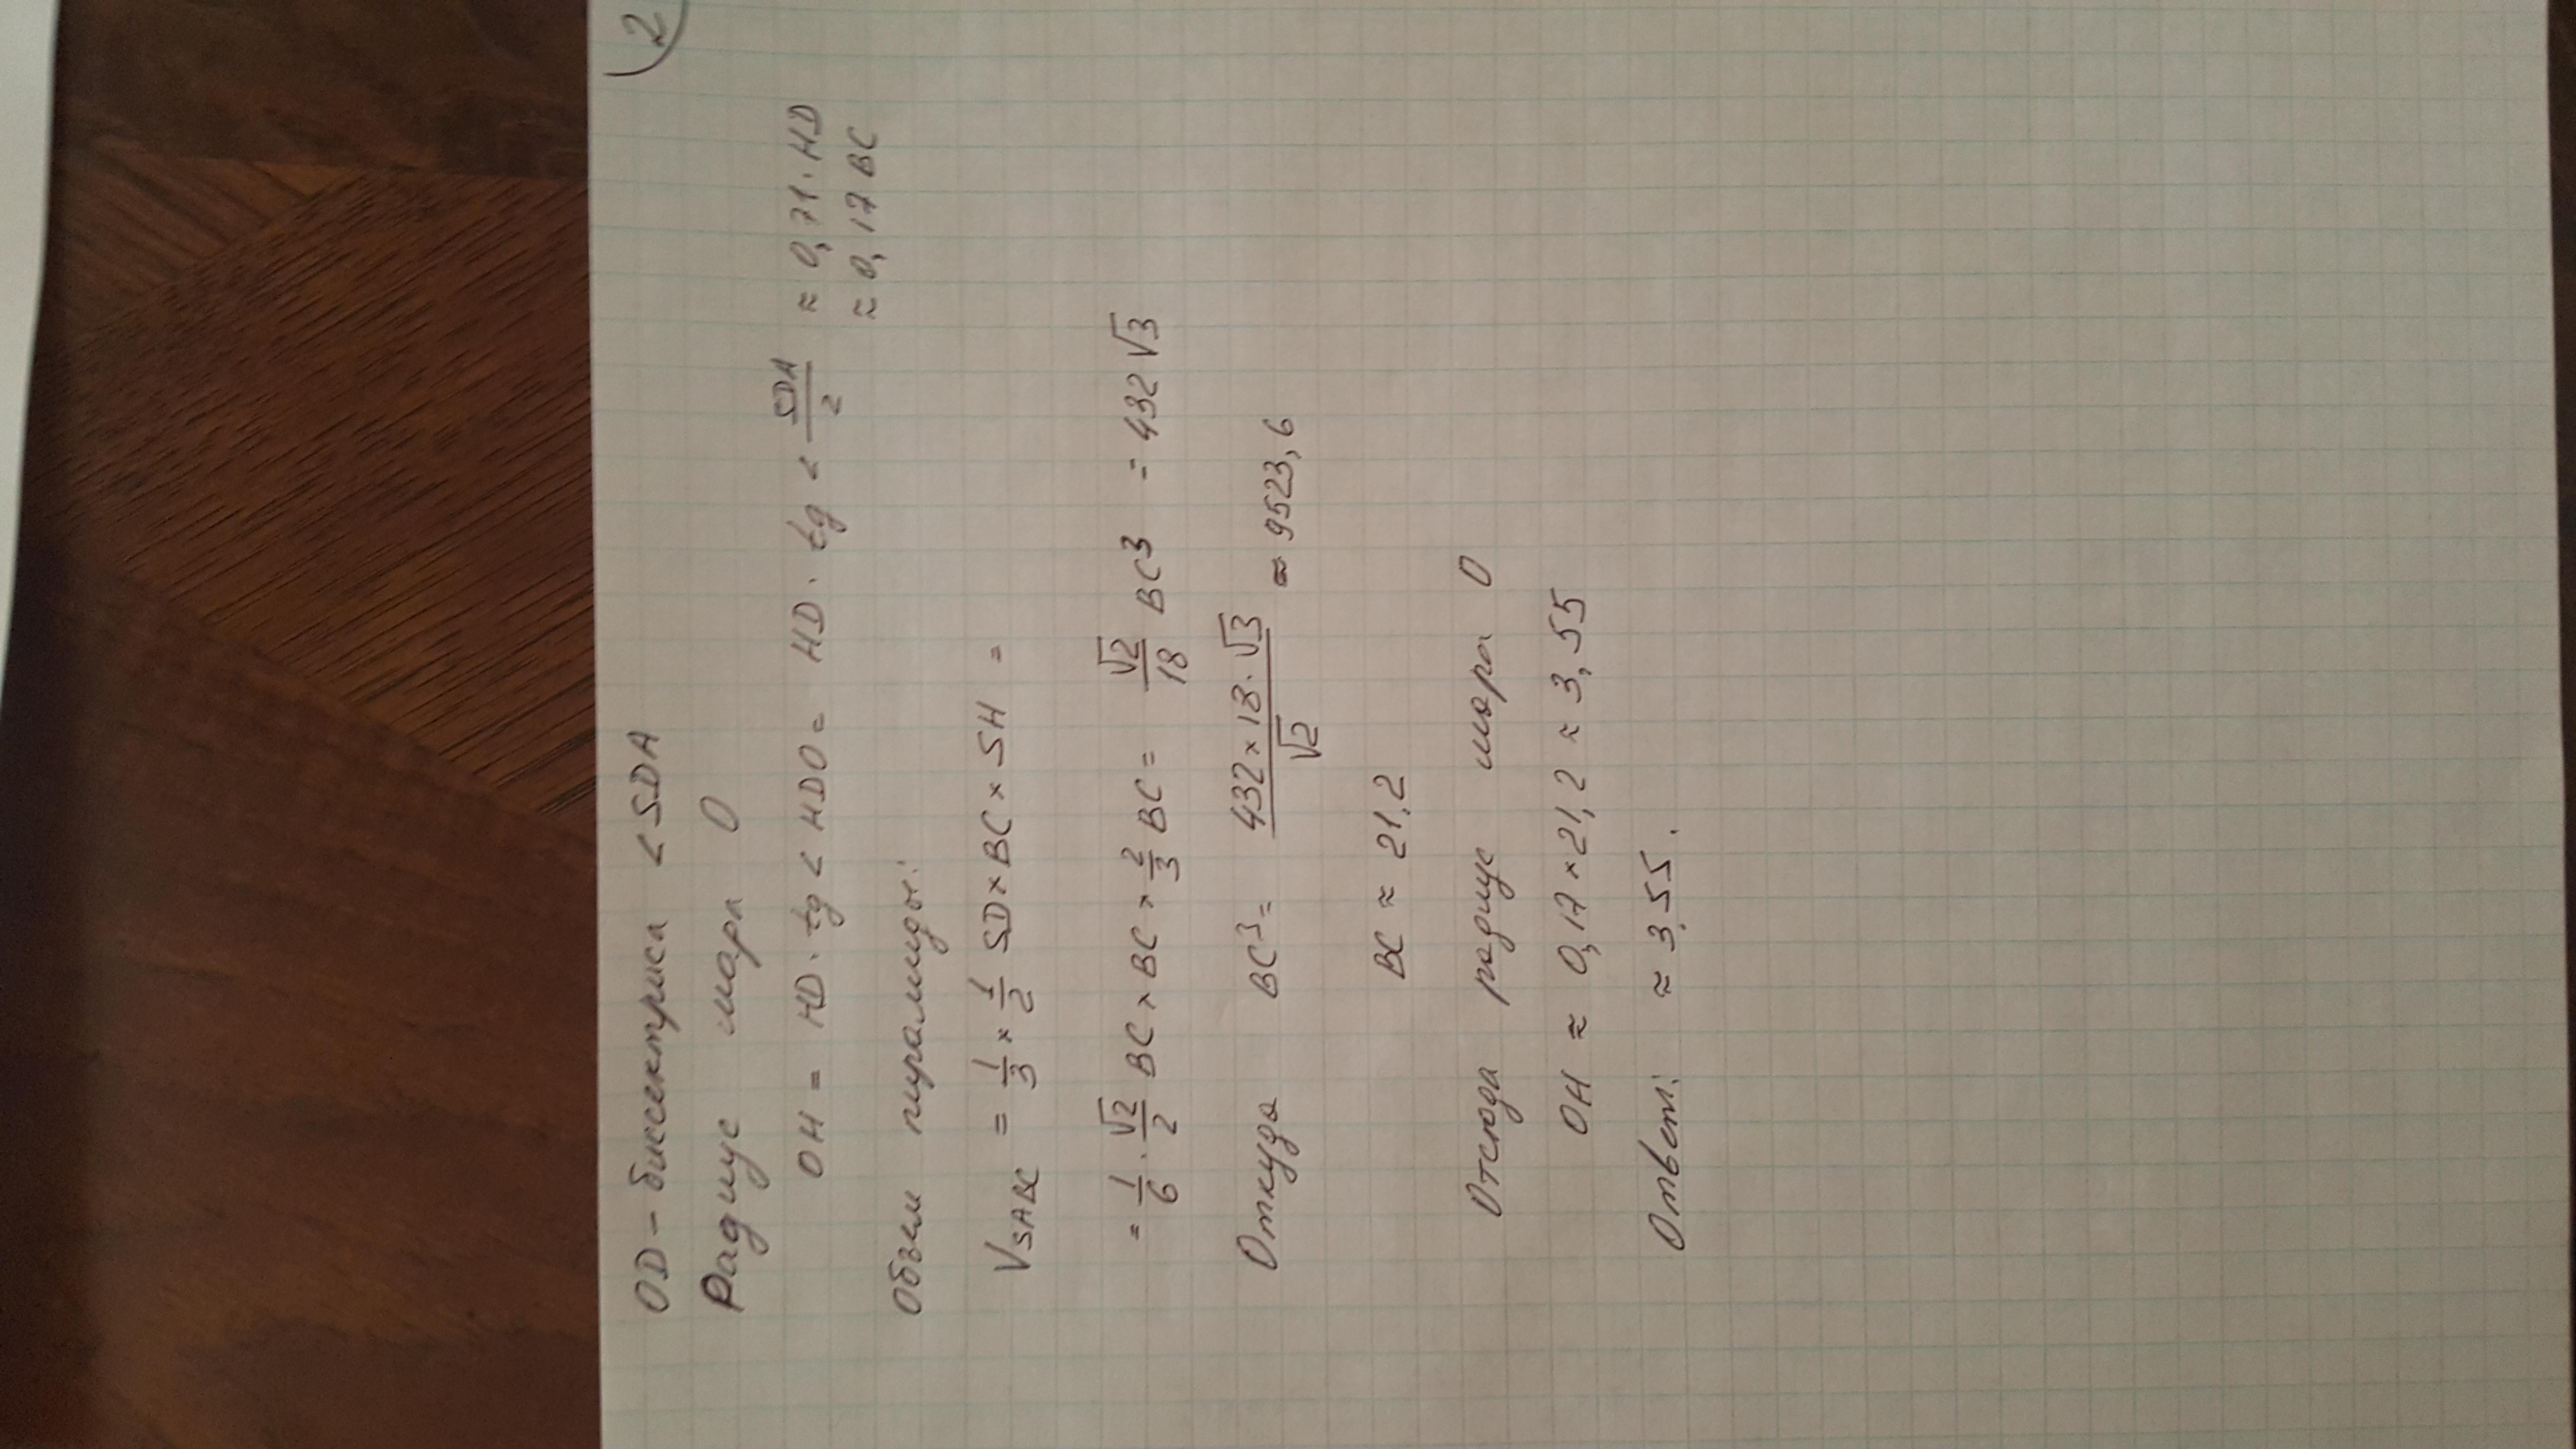 2
OD - биссектриса < SDA
Радиус шара O
OH = HD · tg < HDO = HD · tg < SDA/2 ≈ 0,71 · HD
≈ 0,17 BC
Объем пирамиды:
V SABC = 1/3 × 1/2 SD × BC × SH =
= 1/6 · √2/2 BC × BC × 2/3 BC = √2/18 BC3 = 432 √3
Откуда BC³ = 432 × 18 · √3/√2 ≈ 9523,6
BC ≈ 21,2
Отсюда радиус шара O
OH ≈ 0,17 × 21,2 ≈ 3,55
Ответ: ≈ 3,55.